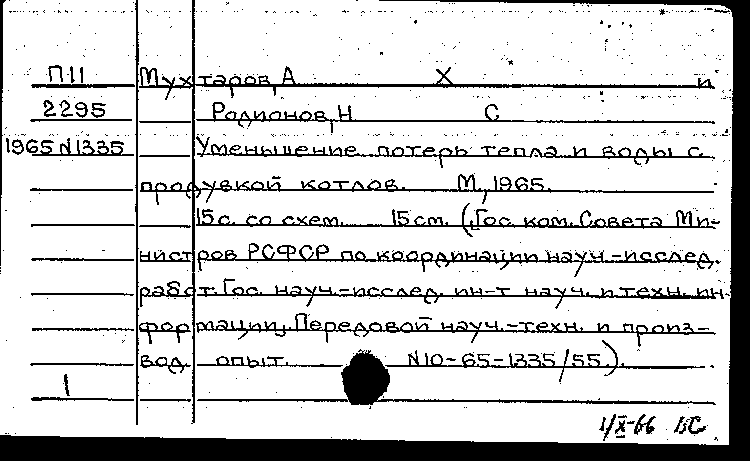 П11 Мухтаров, А Х и
2295 Родионов, Н С
1965 N1335 Уменьшение потерь тепла и воды с
продувкой котлов. М., 1965.
15 с. со схем. 15 см. (Гос. ком. Совета Ми-
нистров РСФСР по координации науч.-исслед.
работ. Гос. науч.-исслед. ин-т науч. и техн. ин-
формации. Передовой науч.-техн. и произ-
вод. опыт. N10-65-1335/55).
1
1/X-66 ВС